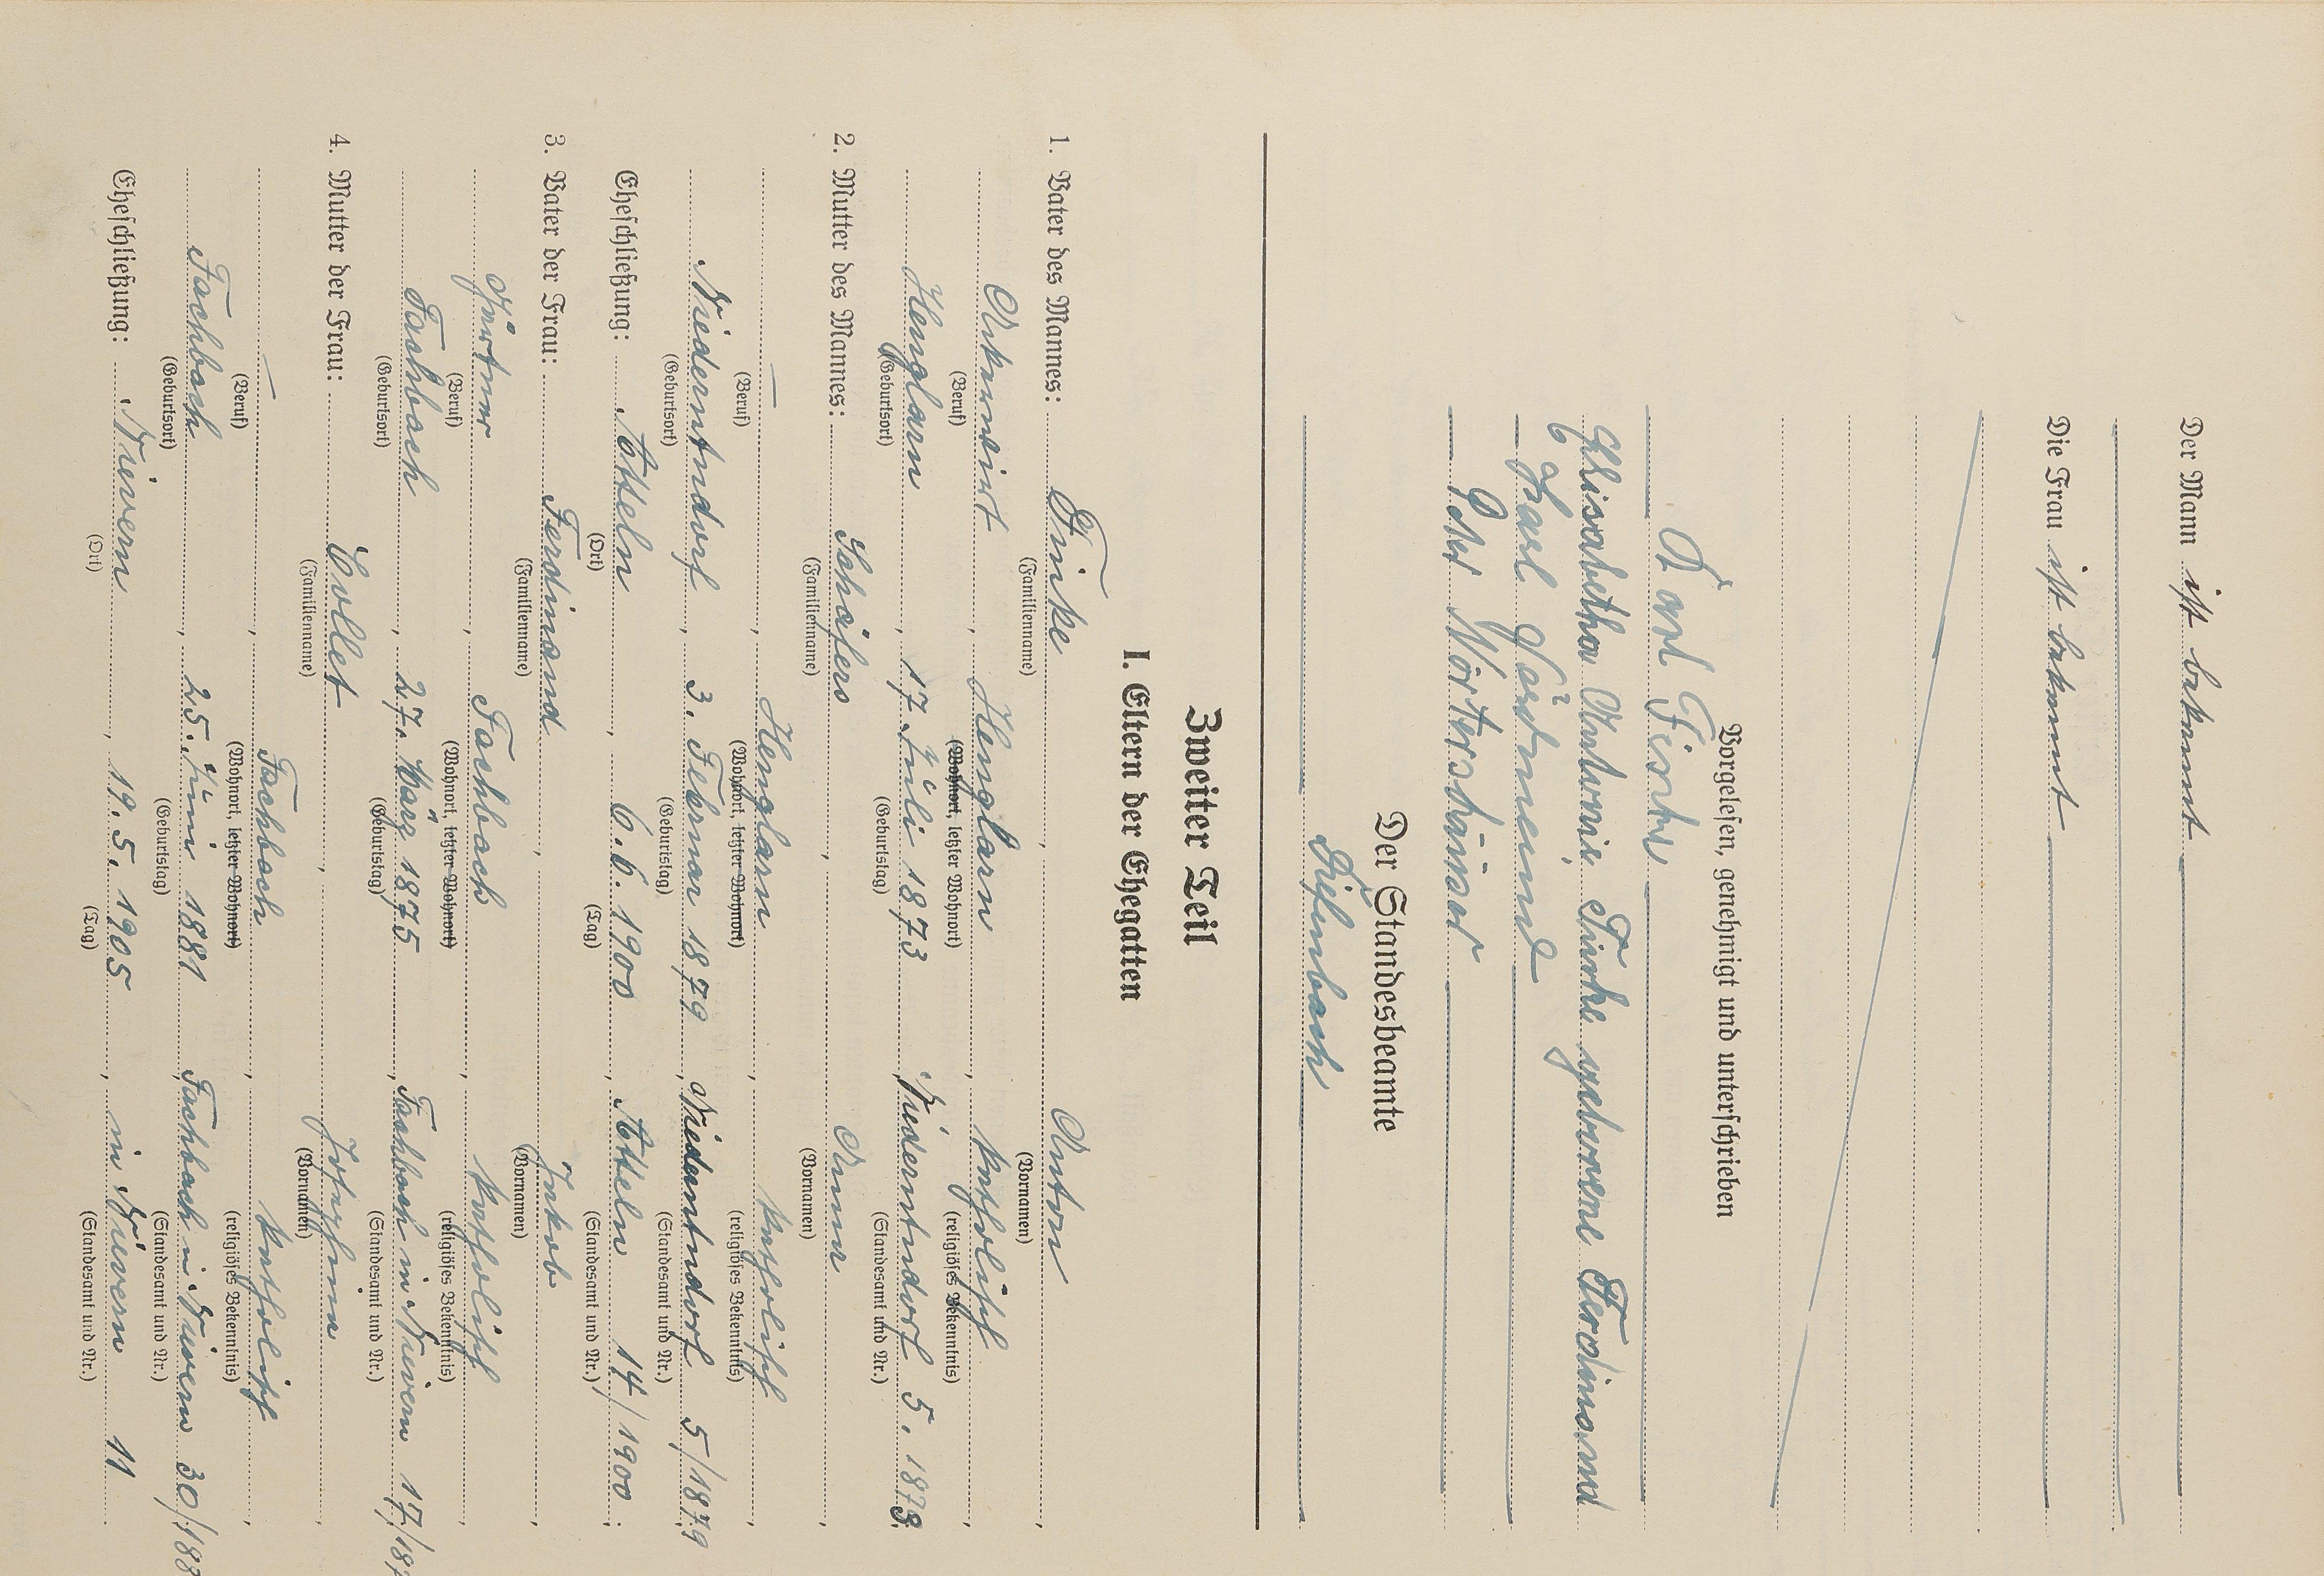 Der Mann ist bekannt
Die Frau ist bekannt
Vorgelesen, genehmigt und unterschrieben
Karl
Elisabetha Finke geborene Ferdinand
Karl
Peter
Der Standesbeamte
Diefenbach
Zweiter Teil
I. Eltern der Ehegatten
1. Vater des Mannes: Finke, Anton
(Familienname) (Vornamen)
Ackerwirt, Henglarn, katholisch
(Beruf) (Wohnort, letzter Wohnort) (religiöses Bekenntnis)
Henglarn, 17. Juli 1873, Niederntudorf 5. 1873
(Geburtsort) (Geburtstag) (Standesamt und Nr.)
2. Mutter des Mannes: Schäfers, Anna
(Familienname) (Vornamen)
—, Henglarn, katholisch
(Beruf) (Wohnort, letzter Wohnort) (religiöses Bekenntnis)
Niederntudorf, 3. Februar 1879, Niederntudorf 5/1879
(Geburtsort) (Geburtstag) (Standesamt und Nr.)
Eheschließung: Atteln, 6.6.1900, Atteln 14/1900;
(Ort) (Tag) (Standesamt und Nr.)
3. Vater der Frau: Ferdinand, Jakob
(Familienname) (Vornamen)
Fachbach, katholisch
(Beruf) (Wohnort, letzter Wohnort) (religiöses Bekenntnis)
Fachbach, 27. März 1875, Fachbach in Nievern 17/187
(Geburtsort) (Geburtstag) (Standesamt und Nr.)
4. Mutter der Frau: Collet, Josefina
(Familienname) (Vornamen)
—, Fachbach, katholisch
(Beruf) (Wohnort, letzter Wohnort) (religiöses Bekenntnis)
Fachbach, 25. Juni 1881, Fachbach in Nievern 30/188
(Geburtsort) (Geburtstag) (Standesamt und Nr.)
Eheschließung: Nievern, 19.5.1905, in Nievern 11
(Ort) (Tag) (Standesamt und Nr.)